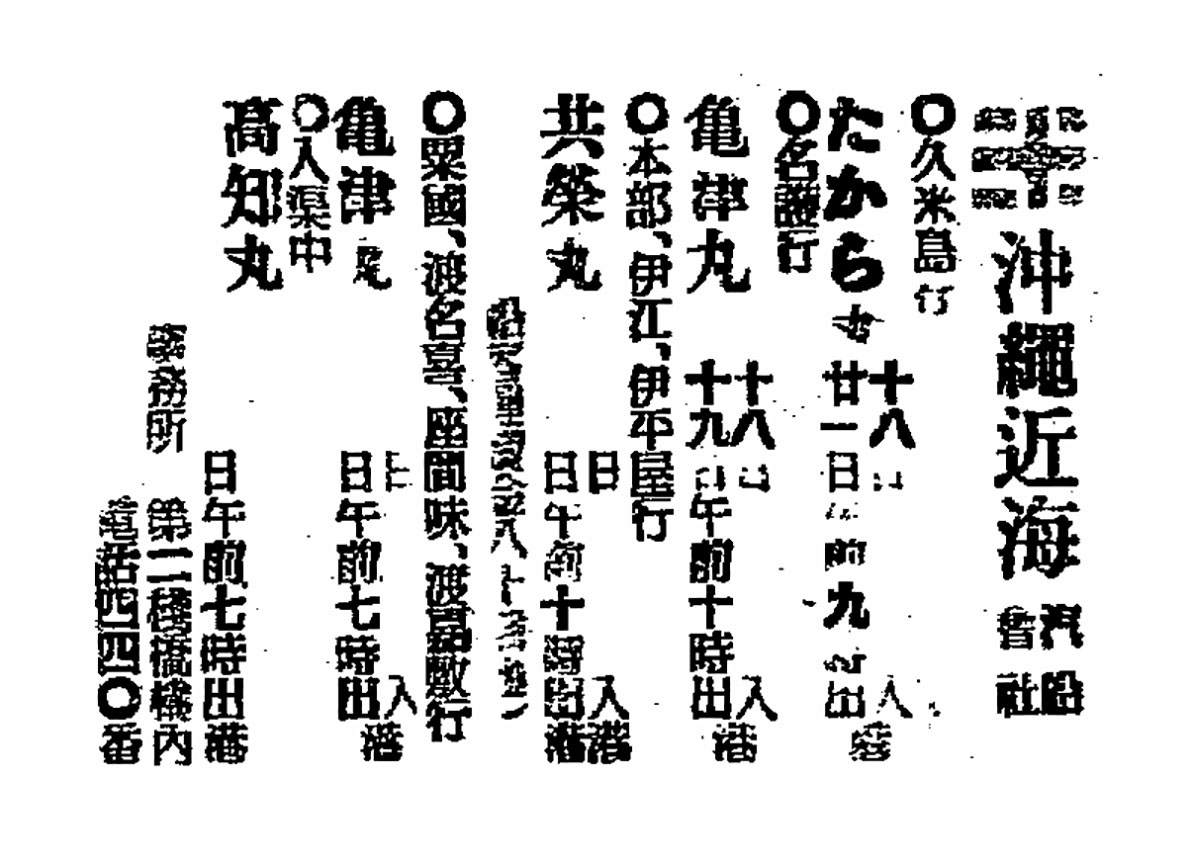 沖縄近海汽船會社
〇久米島行
たから
十八
廿一日 前九 出
〇名護行
亀津丸
十八日入港
十九日午前十時出港
〇本部、伊江、伊平屋行
共榮丸
日入港
日午前十時出港
〇粟國、渡名喜、座間味、渡嘉敷行
亀津丸
入港
日午前七時出港
〇入渠中
高知丸
日午前七時出港
事務所 第二棧橋構內
電話四四〇番